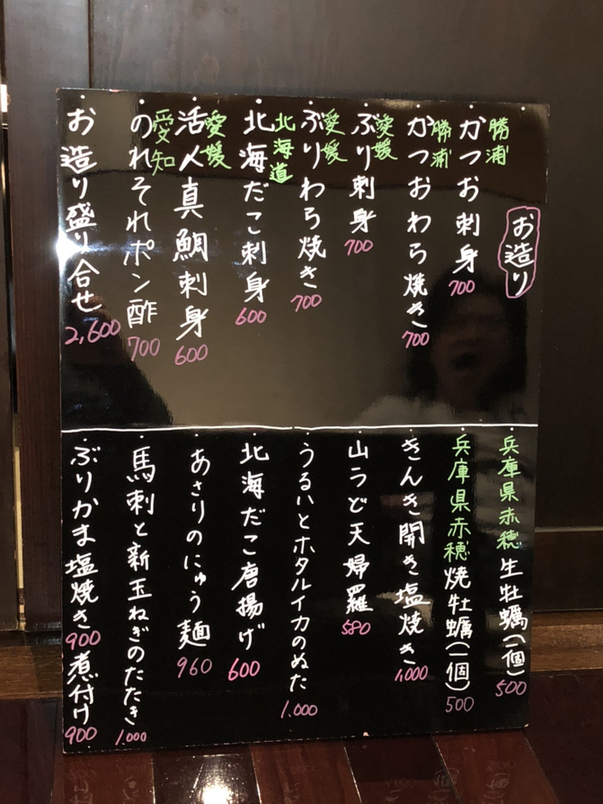 お造り
勝浦 かつお刺身 700
勝浦 かつおわら焼き 700
愛媛 ぶり刺身 700
愛媛 ぶりわら焼き 700
北海道 北海だこ刺身 600
愛媛 活〆真鯛刺身 600
愛知 のれそれポン酢 700
お造り盛り合せ 2,600
兵庫県赤穂 生牡蠣(一個) 500
兵庫県赤穂 焼牡蠣(一個) 500
きんき開き塩焼き 1,000
山うど天婦羅 580
うるいとホタルイカのぬた 1.000
北海だこ唐揚げ 600
あさりのにゅう麺 960
馬刺と新玉ねぎのたたき 1.000
ぶりかま塩焼き 900 煮付け 900